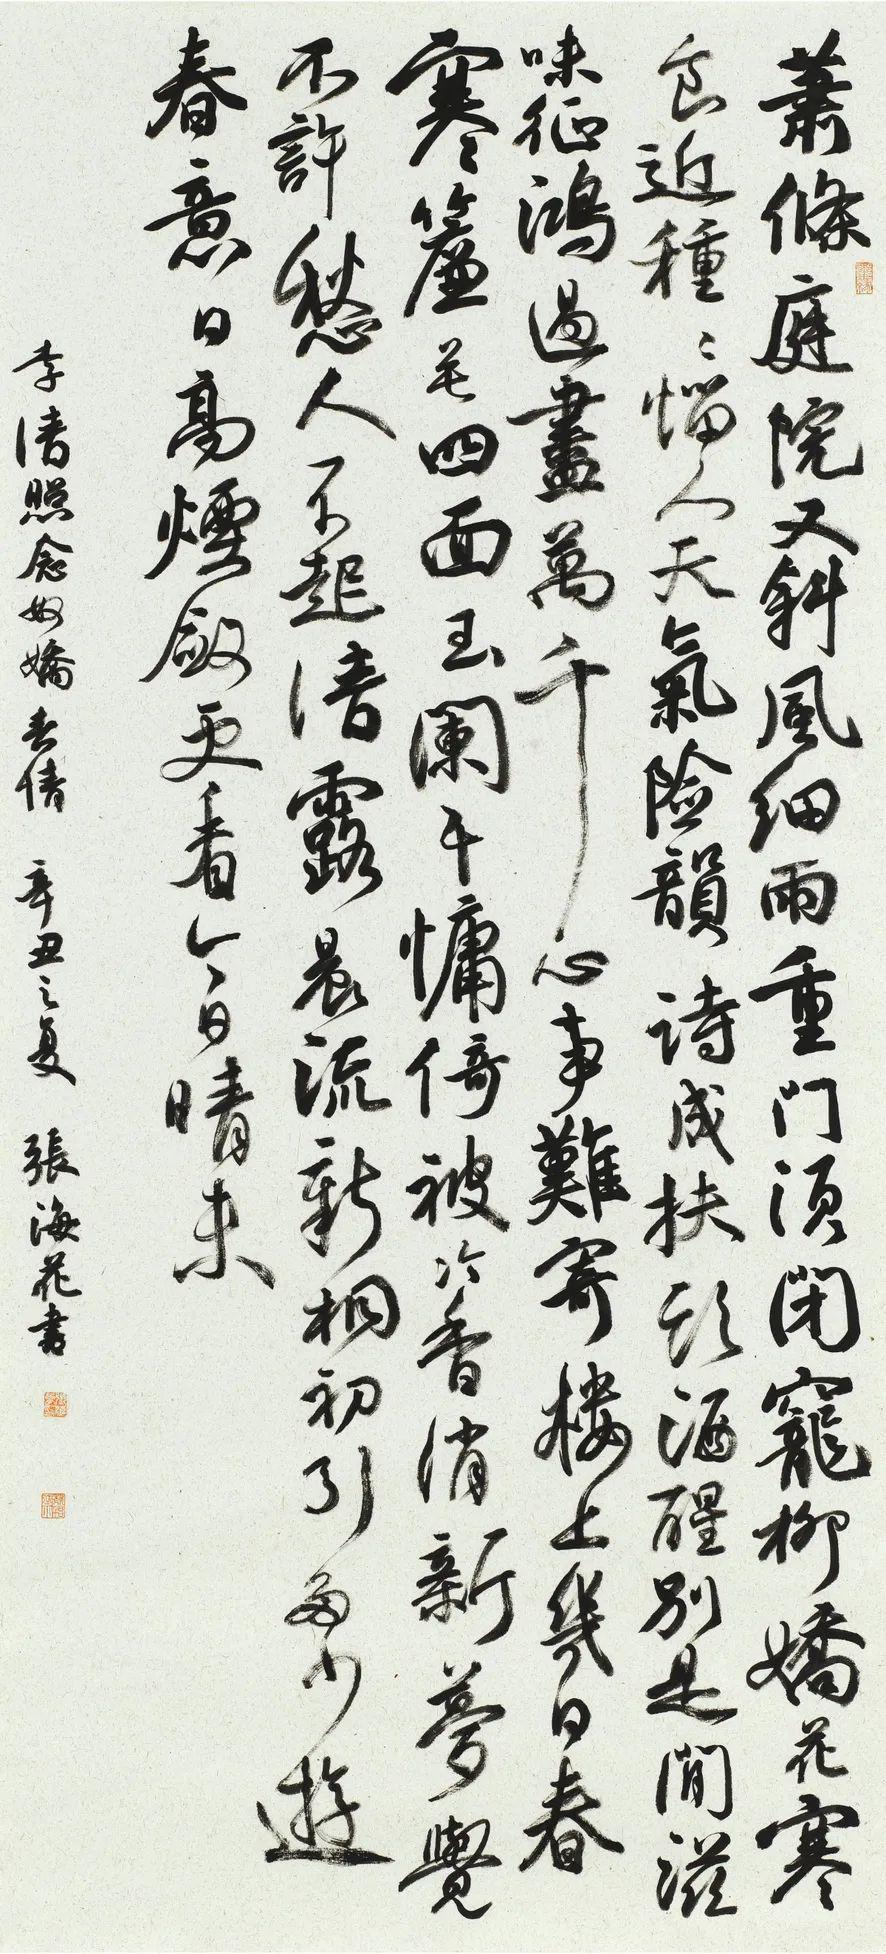 蕭條庭院又斜風細雨重門須閉寵柳嬌花寒
食近種〻惱人天氣險韻詩成扶頭酒醒別是閒滋
味征鴻過盡萬千心事難寄樓上幾日春
寒簾垂四面玉闌干慵倚被冷香消新夢覺
不許愁人不起清露晨流新桐初引多少遊
春意日高煙斂更看今日晴未
李清照念奴嬌春情 辛丑之夏 張海花書